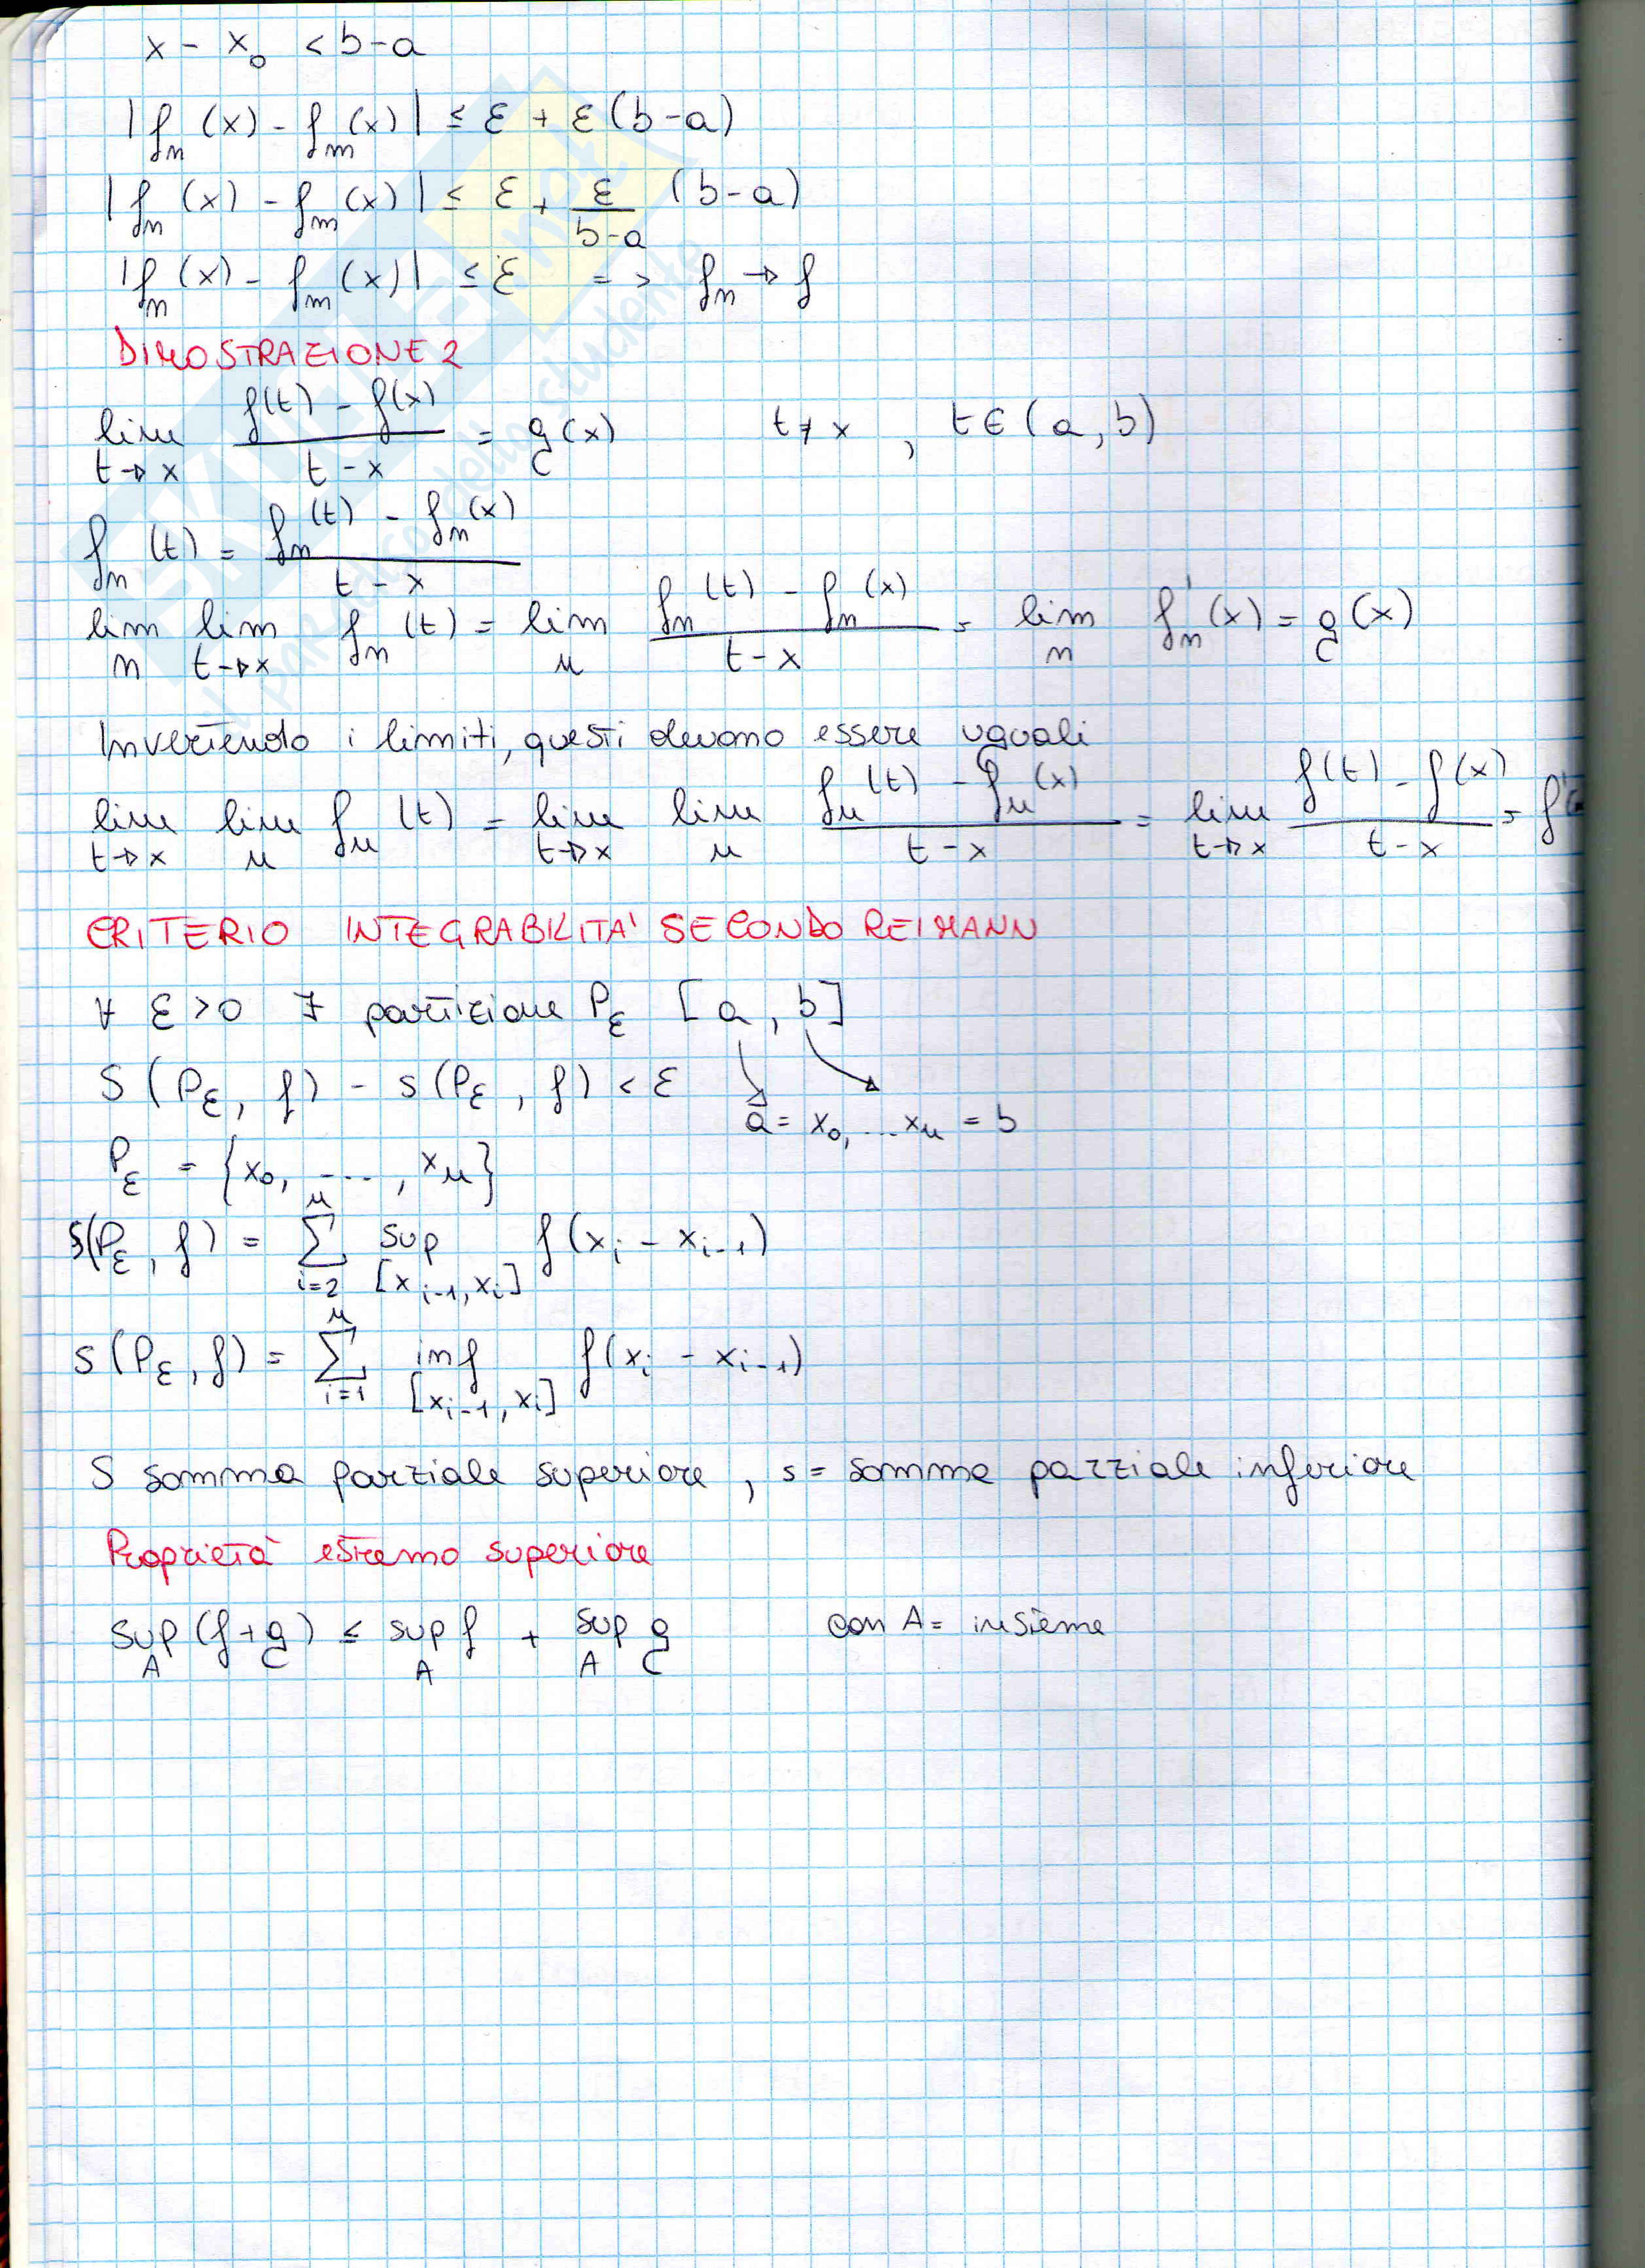 x - x₀ < b-a
|fₙ(x) - fₘ(x)| ≤ ε + ε(b-a)
|fₙ(x) - fₘ(x)| ≤ ε + ε/(b-a) (b-a)
|fₙ(x) - fₘ(x)| ≤ ε => fₙ → f
DIMOSTRAZIONE 2
lim t→x (f(t) - f(x))/(t - x) = g(x) t≠x , t∈(a,b)
fₙ(t) = (fₙ(t) - fₙ(x))/(t - x)
lim n lim t→x fₙ(t) = lim n (fₙ(t) - fₙ(x))/(t-x) = lim n fₙ'(x) = g(x)
Invertendo i limiti, questi devono essere uguali
lim t→x lim n fₙ(t) = lim t→x lim n (fₙ(t) - fₙ(x))/(t-x) = lim t→x (f(t) - f(x))/(t-x) = f'
CRITERIO INTEGRABILITA' SECONDO REIMANN
∀ ε>0 ∃ partizione Pε [a, b]
S(Pε, f) - s(Pε, f) < ε
a = x₀, ... xₙ = b
Pε = {x₀, ...., xₙ}
S(Pε, f) = Σ i=2 n sup [xᵢ₋₁, xᵢ] f(xᵢ - xᵢ₋₁)
s(Pε, f) = Σ i=1 n inf [xᵢ₋₁, xᵢ] f(xᵢ - xᵢ₋₁)
S somma parziale superiore, s = somma parziale inferiore
Proprietà estremo superiore
sup A (f+g) ≤ sup A f + sup A g con A = insieme
SKUOLA.net
il paradiso dello studente